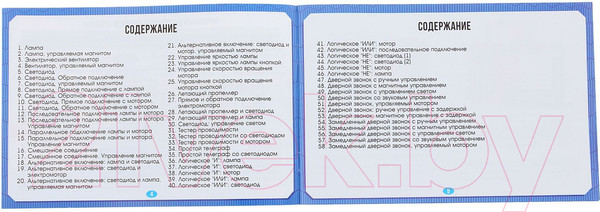 СОДЕРЖАНИЕ
1. Лампа
2. Лампа, управляемая магнитом
3. Электрический вентилятор
4. Вентилятор, управляемый магнитом
5. Светодиод
6. Светодиод. Обратное подключение
7. Светодиод, управляемый магнитом
8. Светодиод. Прямое подключение с лампой
9. Светодиод. Обратное подключение с лампой
10. Светодиод. Прямое подключение с мотором
11. Светодиод. Обратное подключение с мотором
12. Последовательное подключение лампы и мотора
13. Последовательное подключение лампы и мотора.
Управление магнитом
14. Параллельное подключение лампы и мотора
15. Параллельное подключение лампы и мотора.
Управление магнитом
16. Смешанное соединение
17. Смешанное соединение. Управление магнитом
18. Альтернативное включение: лампа и светодиод
19. Альтернативное включение: светодиод и
электромотор
20. Альтернативное включение: светодиод и лампа,
управляемая магнитом
21. Альтернативное включение: светодиод и
мотор, управляемый магнитом
22. Управление яркостью лампы
23. Управление яркостью лампы кнопкой
24. Управление скоростью вращения
мотора
25. Управление скоростью вращения
мотора кнопкой
26. Летающий пропеллер
27. Прямое и обратное подключение
электромотора
28. Летающий пропеллер и светодиод
29. Летающий пропеллер и лампа
30. Светодиод, управление светом
31. Тестер проводимости
32. Тестер проводимости со светодиодом
33. Тестер проводимости с мотором
34. Простой телеграф
35. Простой телеграф со светодиодом
36. Логическое "И": лампа
37. Логическое "И": светодиод
38. Логическое "И": мотор
39. Логическое "ИЛИ": лампа
40. Логическое "ИЛИ": светодиод
4
СОДЕРЖАНИЕ
41. Логическое "ИЛИ": мотор
42. Логическое "ИЛИ": последовательное подключение
43. Логическое "НЕ": светодиод (1)
44. Логическое "НЕ": светодиод (2)
45. Логическое "НЕ": мотор
46. Логическое "НЕ": лампа
47. Дверной звонок с ручным управлением
48. Дверной звонок с магнитным управлением
49. Дверной звонок с управлением светом
50. Дверной звонок со звуковым управлением
51. Дверной звонок, управляемый мотором
52. Дверной звонок: ручное управление с задержкой
53. Дверной звонок: магнитное управление с задержкой
54. Замедленный дверной звонок с ручным управлением
55. Замедленный дверной звонок с магнитным управлением
56. Замедленный дверной звонок с управлением светом
57. Замедленный дверной звонок со звуковым управлением
58. Замедленный дверной звонок, управляемый мотором
5